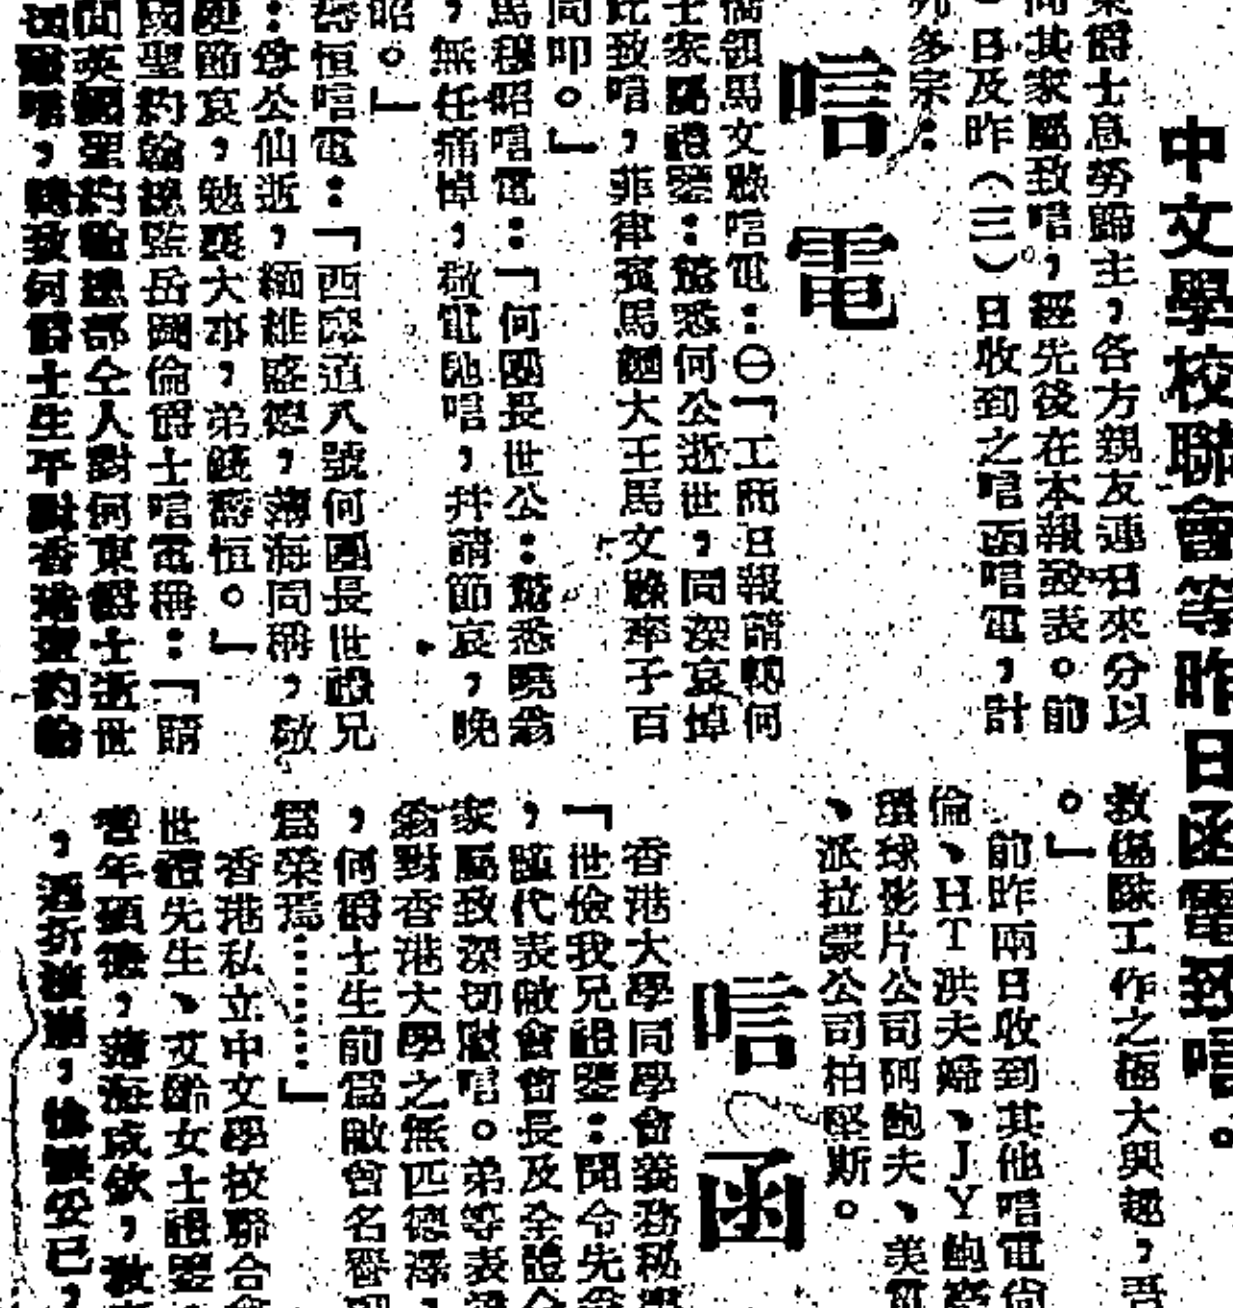 中文學校聯會等昨日函電致唁。
爵士息勞歸主，各方親友連日來分以
其家屬致唁，經先後在本報發表。前
日及昨（三）日收到之唁函唁電，計
列多宗：
唁電
領馬文縣唁電：㊀「工商日報請轉何
士家屬禮鑒：驚悉何公逝世，同深哀悼
此致唁，菲律賓馬麵大王馬文縣率子百
同叩。」
馬穆昭唁電：「何團長世公：驚悉曉翁
，無任痛悼，敬電馳唁，并請節哀，晚
昭。」
壽恒唁電：「西摩道八號何團長世禮兄
：尊公仙逝，緬維盛德，薄海同稱，敬
節哀，勉襄大事，弟錢壽恒。」
國聖約翰總監岳國倫爵士唁電稱：「請
英國聖約翰總部仝人對何東爵士逝世
唁，轉致何爵士生平對香港聖約翰
救傷隊工作之極大興趣，吾
。」
前昨兩日收到其他唁電尙
倫、HT洪夫婦、JY鮑
環球影片公司阿鮑夫、美
、派拉蒙公司柏堅斯。
唁函
香港大學同學會義務秘
「世儉我兄禮鑒：聞令先翁
，謹代表敝會會長及全體會
家屬致深切慰唁。弟等表
翁對香港大學之無匹德澤，
，何爵士生前爲敝會名譽
爲榮焉……」
香港私立中文學校聯合會
世禮先生、艾齡女士禮鑒
耆年碩德，薄海咸欽，
，遽折梁崩，妥已，